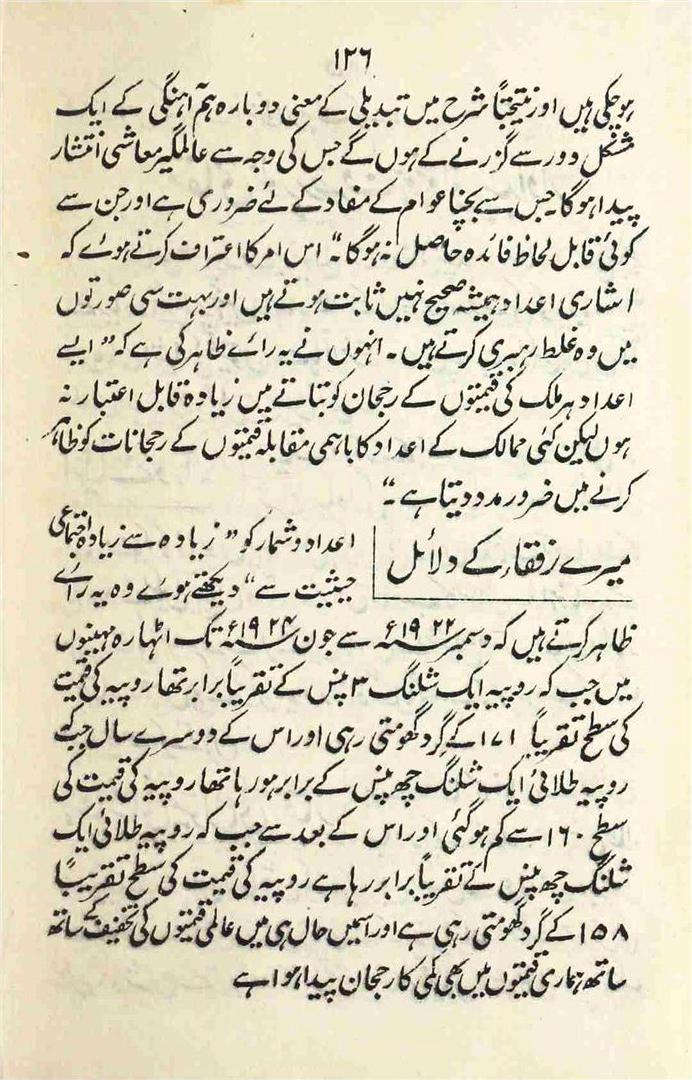 ۱۲۶
ہوچکی ہیں اور نتیجتاً شرح میں تبدیلی کے معنی دوبارہ ہم آہنگی کے ایک
مشکل دور سے گزرنے کے ہوں گے جس کی وجہ سے عالمگیر معاشی انتشار
پیدا ہوگا۔ جس سے بچنا عوام کے مفاد کے لئے ضروری ہے اور جن سے
کوئی قابل لحاظ فائدہ حاصل نہ ہوگا۔“ اس امر کا اعتراف کرتے ہوئے کہ
اشاری اعداد ہمیشہ صحیح نہیں ثابت ہوتے ہیں اور بہت سی صورتوں
میں وہ غلط رہبری کرتے ہیں۔ انہوں نے یہ رائے ظاہر کی ہے کہ ”ایسے
اعداد ہر ملک کی قیمتوں کے رجحان کو بتانے میں زیادہ قابل اعتبار نہ
ہوں لیکن کئی ممالک کے اعداد کا باہمی مقابلہ قیمتوں کے رجحانات کو ظاہر
کرنے میں ضرور مدد دیتا ہے۔“
میرے رفقاء کے دلائل
اعداد و شمار کو ”زیادہ سے زیادہ اجتماعی
حیثیت سے“ دیکھتے ہوئے وہ یہ رائے
ظاہر کرتے ہیں کہ دسمبر ۱۹۲۲ء سے جون ۱۹۲۴ء تک اٹھارہ مہینوں
میں جب کہ روپیہ ایک شلنگ ۳ پنس کے تقریباً برابر تھا روپیہ کی قیمت
کی سطح تقریباً ۱۷۱ کے گرد گھومتی رہی اور اس کے دوسرے سال جب کہ
روپیہ طلائی ایک شلنگ چھ پنس کے برابر ہو رہا تھا روپیہ کی قیمت کی
سطح ۱۶۰ سے کم ہوگئی اور اس کے بعد سے جب کہ روپیہ طلائی ایک
شلنگ چھ پنس کے تقریباً برابر رہا ہے روپیہ کی قیمت کی سطح تقریباً
۱۵۸ کے گرد گھومتی رہی ہے اور اسمیں حال ہی میں عالمی قیمتوں کی تخفیف کے ساتھ
ساتھ ہماری قیمتوں میں بھی کمی کا رجحان پیدا ہوا ہے